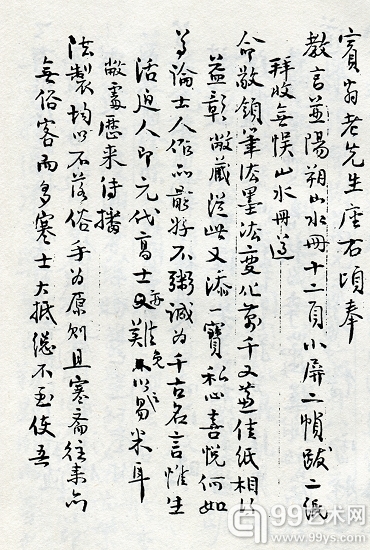 賓翁老先生座右頃奉
教言並陽朔山水冊十二頁小屏二幀跋二紙
拜收無悮山水冊遵
命敬領筆法墨法變化萬千又兼佳紙相得
益彰敝藏從此又添一寶私心喜悅何如
論士人作品最好不鬻誠為千古名言惟生
活迫人即元代高士又難免不以易米耳
敝處歷來待播
法製均以不落俗手為原則且寒齋往來向
無俗客而多寒士大抵總不至使吾
99艺术网
www.99ys.com